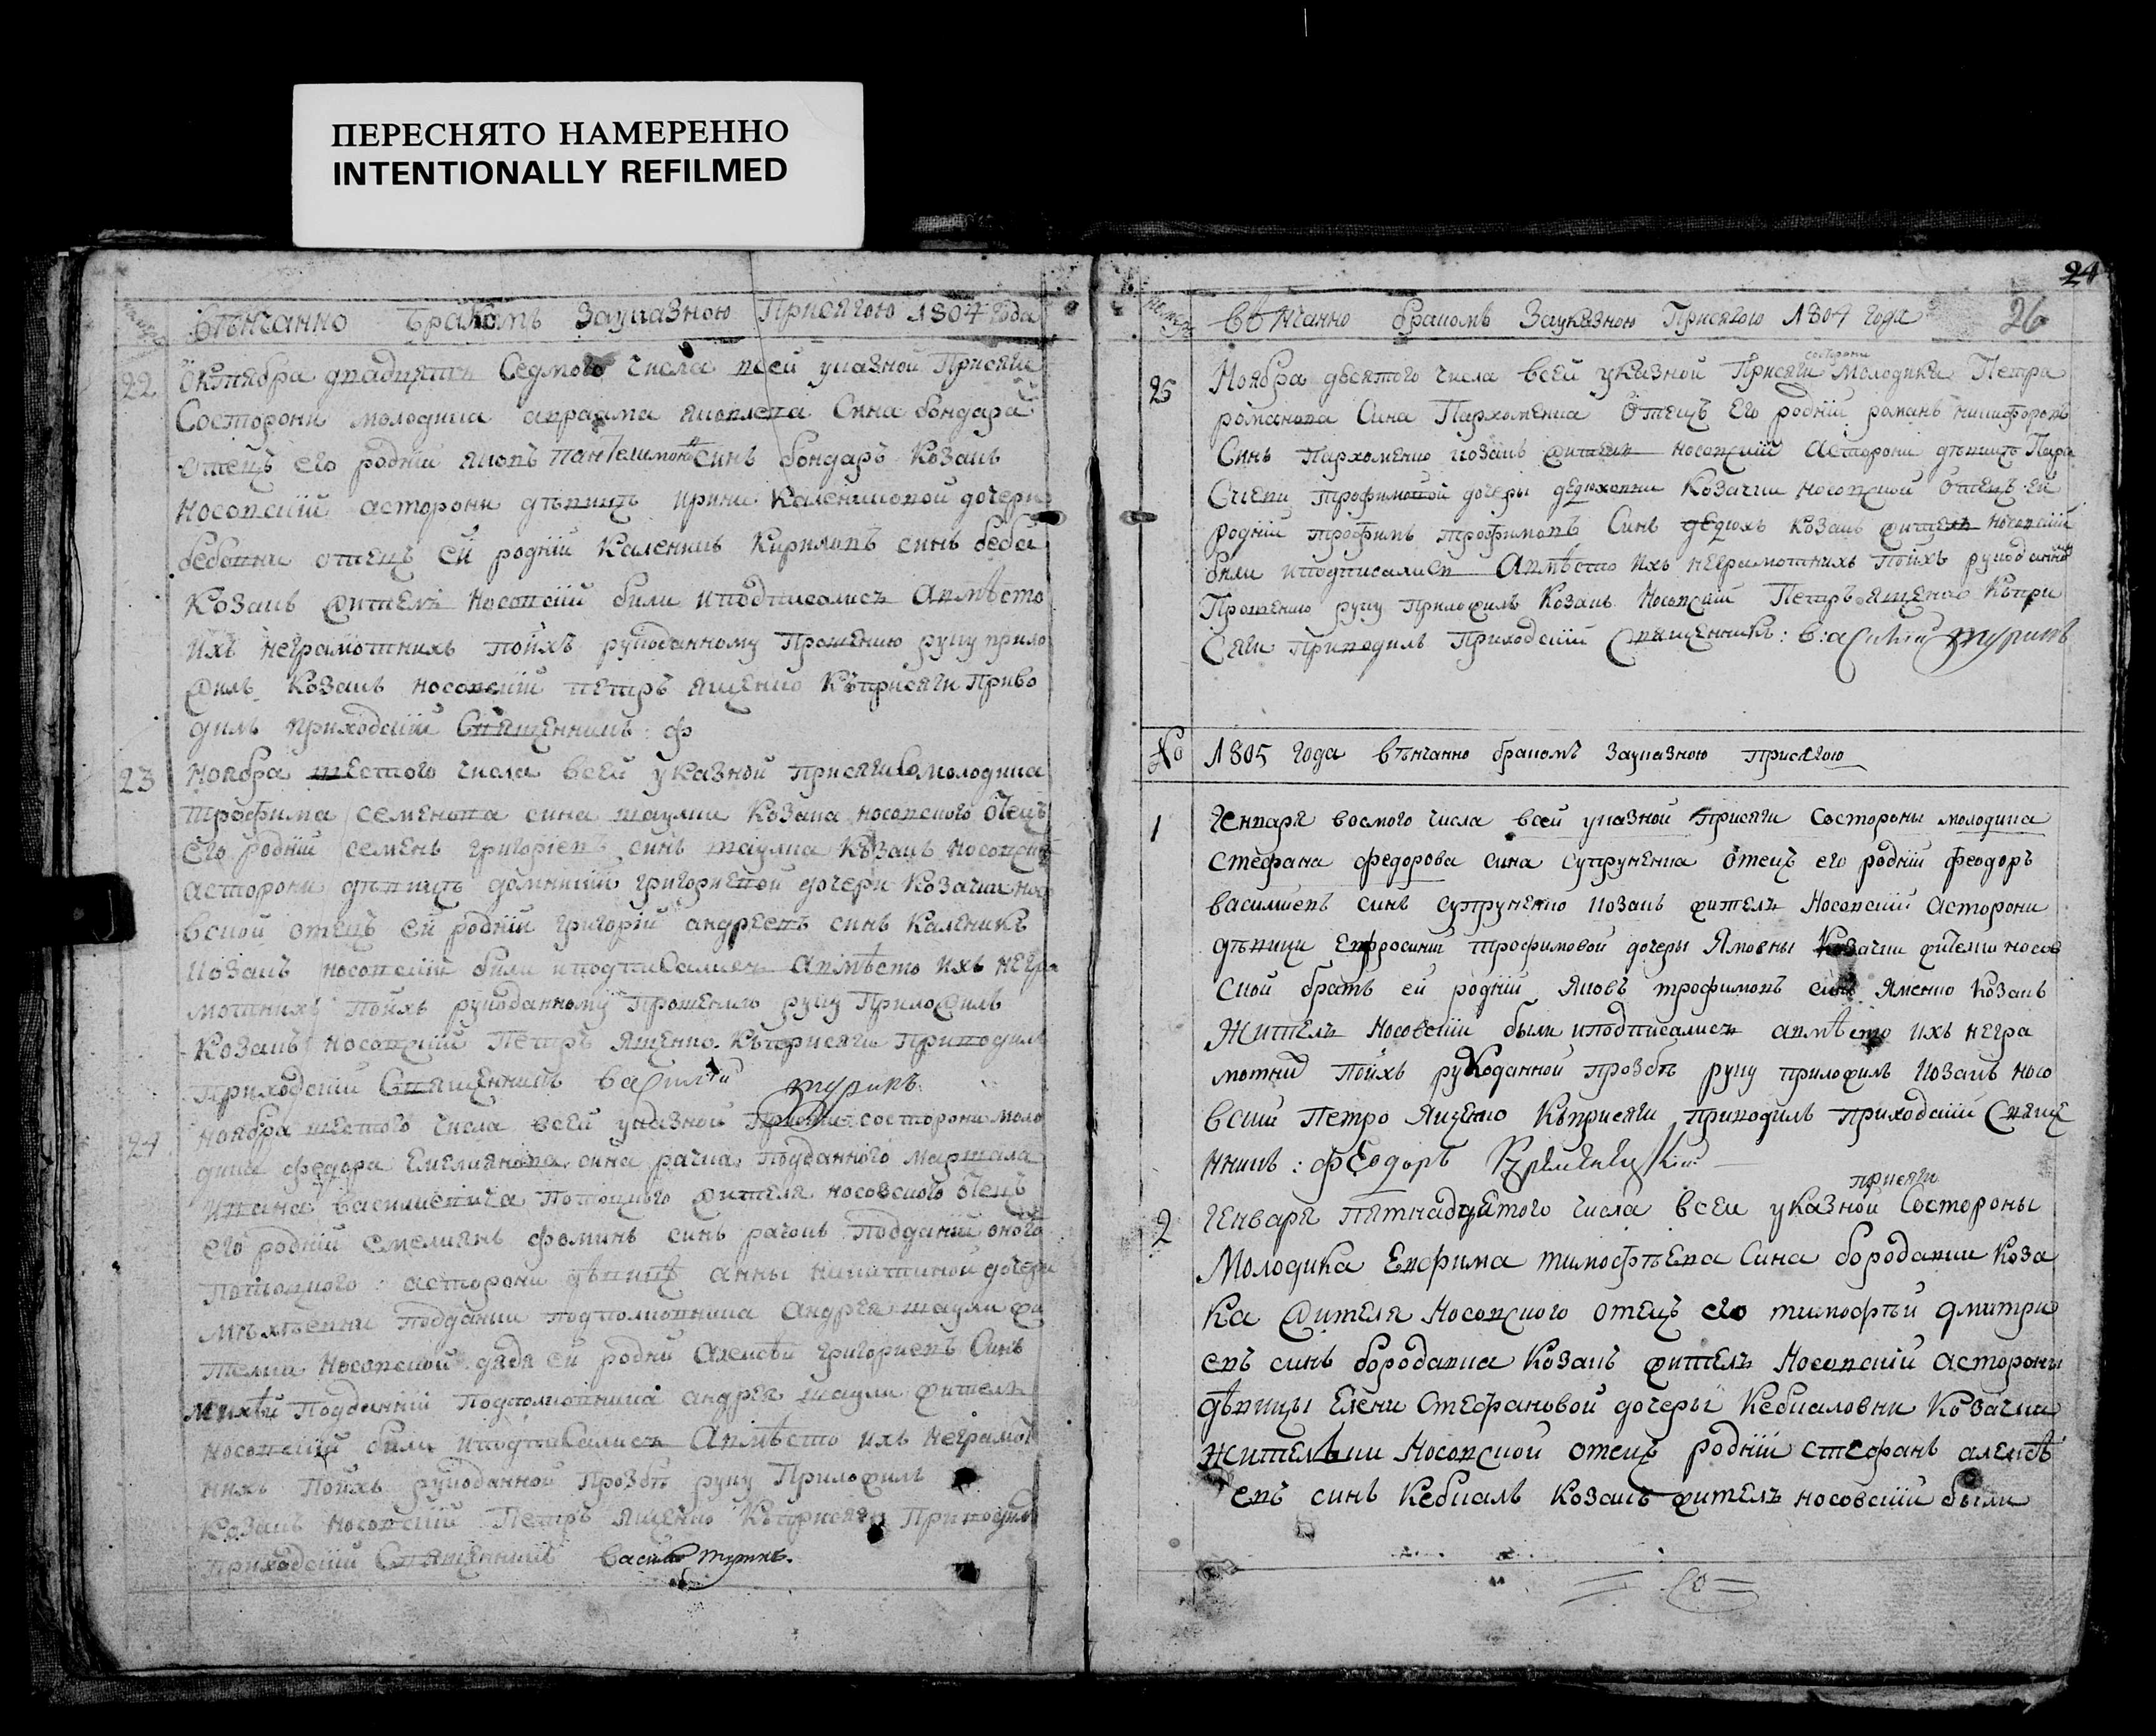 ПЕРЕСНЯТО НАМЕРЕННО
INTENTIONALLY REFILMED
вѣнчанно бракомъ Зауказною Присягою 1804 года
22 Октября двадцять Седмого числа всей указной Присяги
Состорони молодика авраама яковлева Сина бондара
отецъ его родній яковъ Пантелимоновъ синъ бондаръ Козакъ
Носовскій асторони дѣвицъ ирини Калениковой дочери
бебовни отецъ ей родній Каленикъ Кириловъ синъ беба
Козакъ жителъ Носовскій били иподписалисъ Авмѣсто
ихъ неграмотнихъ поихъ рукоданному Прошению руку прило
жилъ Козакъ носовскій петръ ященко Къприсяги Приво
дилъ приходскій Священникъ: ф
23 Ноября шестого числа всей указной присяги молодика
трофима семенова сина шаулки Козака носовского отецъ
его родній семенъ григоріевъ синъ шаулка Козакъ Носовскій
асторони дѣвицъ домникій григориевой дочери Козачки носо
вской отецъ ей родній григорій андреевъ синъ Каленикъ
Козакъ носовскій били иподписалисъ Авмѣсто ихъ негра
мотнихъ поихъ рукоданному Прошению руку Приложилъ
Козакъ Носовскій Петръ Ященко Къприсяги Приводилъ
Приходскій Священникъ василий турикъ
24 Ноября шестого числа всей указной Присяги состорони моло
дика федора Емелиянова сина рачка подданного маршала
ивана василиевича Потоцкого жителя носовского отецъ
его родній емелиянъ фоминъ синъ рачокъ подданій оного
Потоцкого асторони дѣвицѣ анны никитиной дочери
подданки подполковника андрея шаули жи
телки Носовской дядя ей родній Алексѣй григориевъ Синъ
михѣй Подданній Подполковника андрея шаули жителъ
носовскій били иподписалисъ Авмѣсто ихъ неграмот
нихъ поихъ рукоданной прозбѣ руку Приложилъ
Козакъ носовскій Петръ Ященко Къприсяги Приводилъ
приходскій Священникъ василий турикъ.
24
26
вѣнчанно бракомъ Зауказною Присягою 1804 года
состорони
25 Ноября двятого числа всей указной Присяги молодика Петра
романова Сина Пархоменка Отецъ Его родній романъ никифоровъ
Синъ Пархоменко козакъ жителъ носовскій Асторони дѣвицъ Пара
Скеви трофимовой дочеры дедюховни Козачки носовской Отецъ ей
родній трофимъ трофимовъ Синъ дедюхъ козакъ жителъ носовскій
били иподписалися Авмѣсто ихъ неграмотнихъ поихъ рукоданно
Прошению руку Приложилъ Козакъ Носовскій Петръ ященко Къпри
Сяги Приводилъ Приходскій Священникъ: василий турикъ
No 1805 года вѣнчанно бракомъ зауказною присягою
1 Генваря восмого числа всей указной Присяги состороны молодика
стефана федорова сина супруненка отецъ его родній феодоръ
василиевъ синъ супруненко козакъ жителъ Носовскій Асторони
дѣвици Евфросиніи трофимовой дочеры Яковны Козачки жителки носов
ской братъ ей родній Яковъ трофимовъ синъ Яменко козакъ
Жителъ Носовскій были иподписалисъ авмѣсто ихъ негра
мотнихъ поихъ рукоданной прозбѣ руку приложилъ козакъ носо
вскій Петро Яценко Къприсяги приводилъ приходскій Свяще
нникъ: феодоръ Кременецкій
присяги
2 Генваря пятнадцятого числа всей указной Состороны
Молодика Евфима тимофѣева Сина бородавки Коза
ка жителя Носовского отецъ его тимофѣй дмитри
евъ синъ бородавка Козакъ жителъ Носовскій асторони
дѣвицы Елени Стефановой дочеры Кебкаловни Козачки
жителѣки Носовской отецъ родній стефанъ алексѣ
евъ синъ Кебкалъ Козакъ жителъ носовскій были